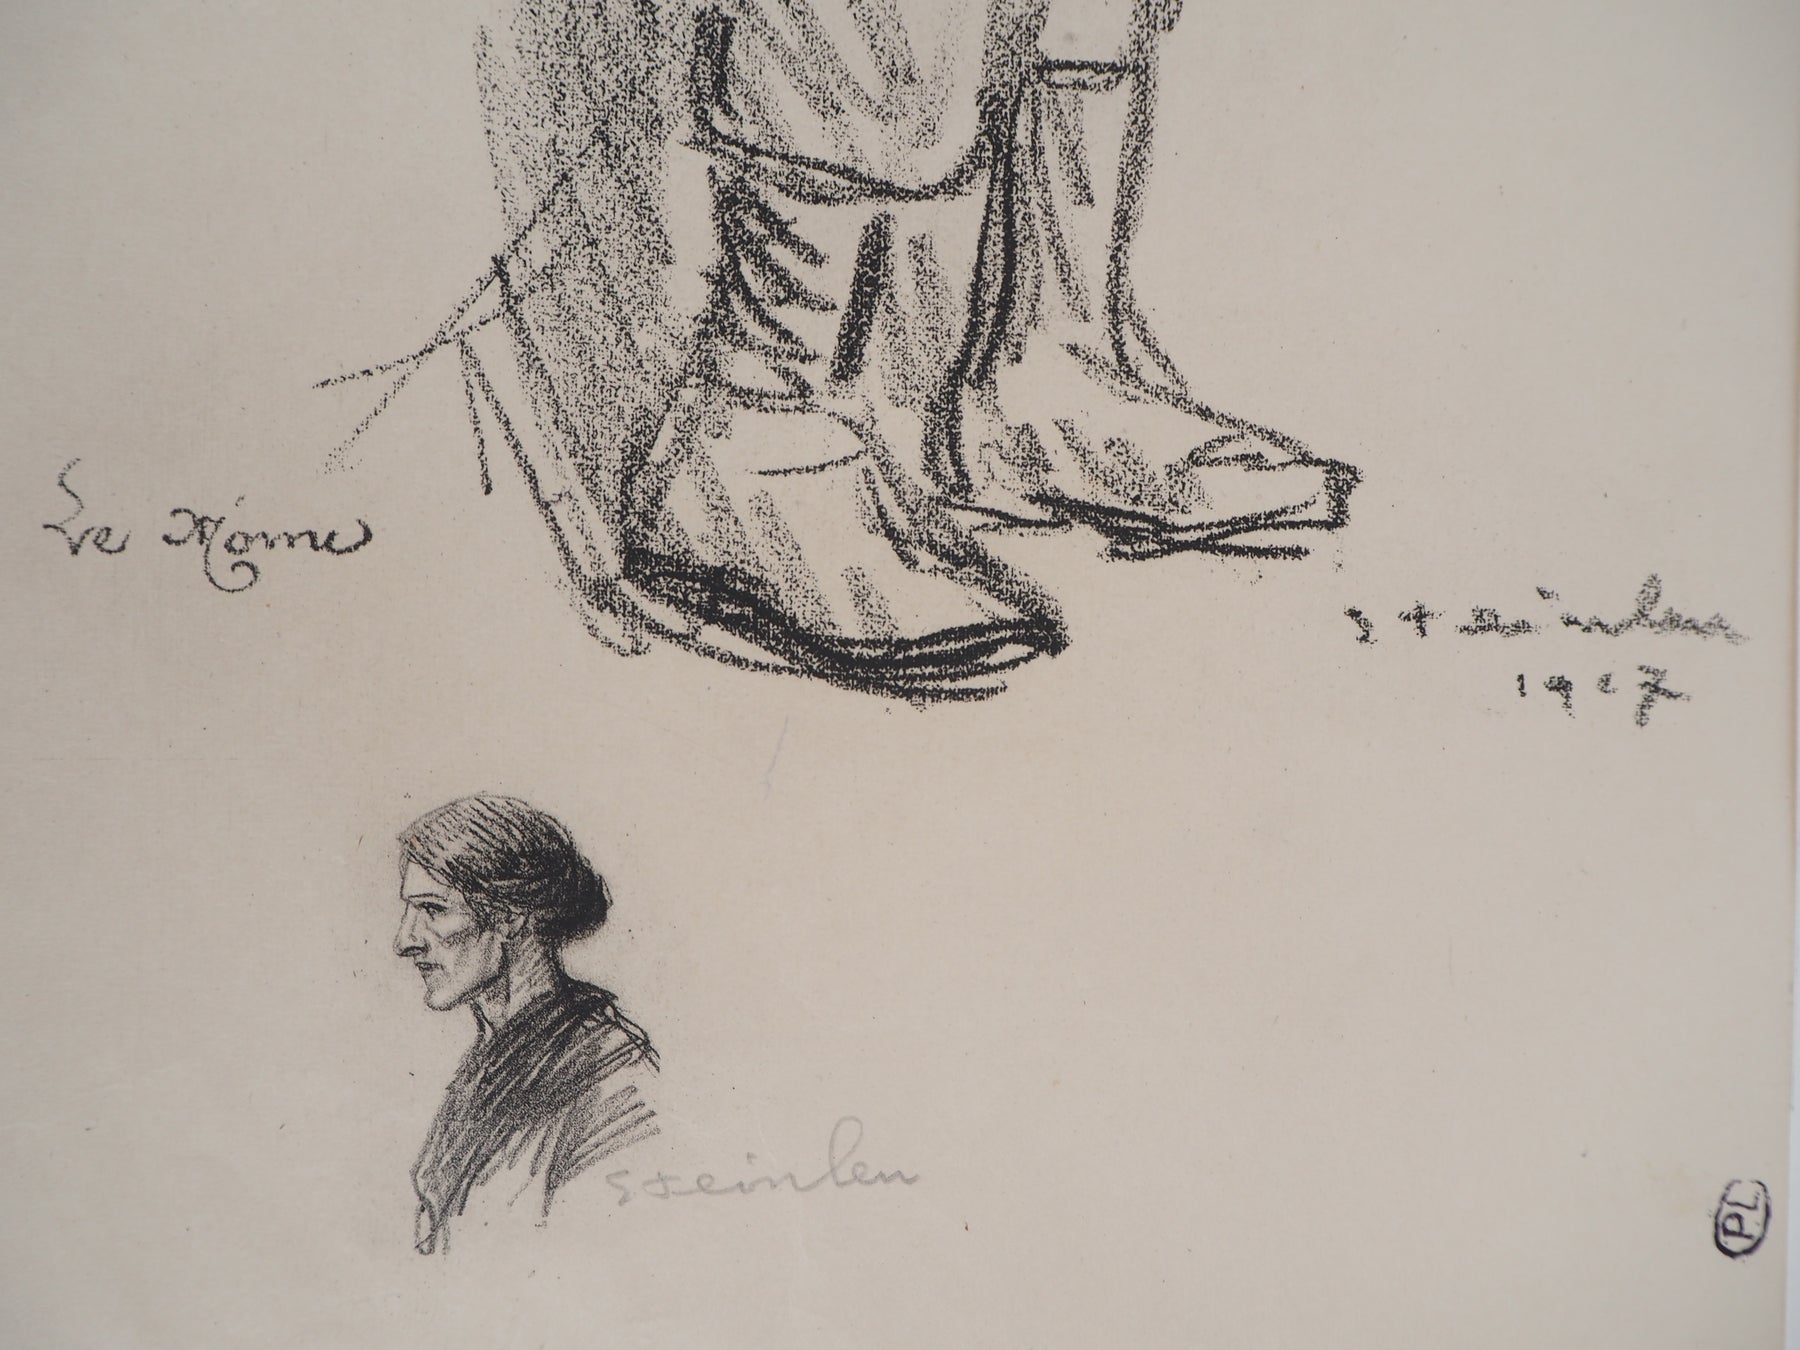 Le Môme
Steinlen
1917
Steinlen
PL